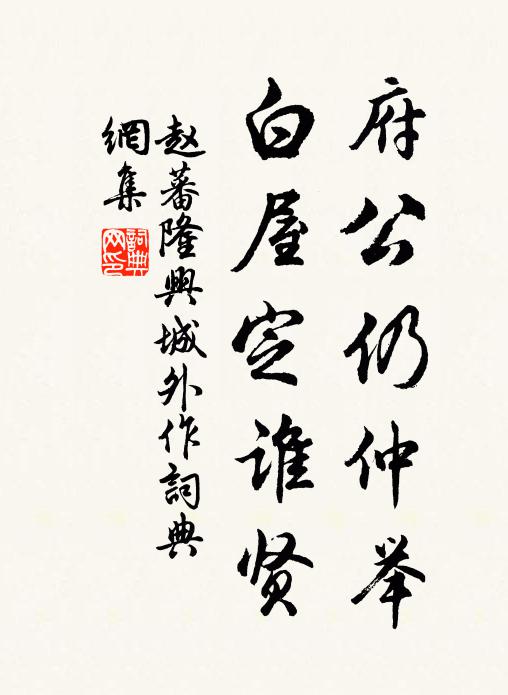 府公仍仲举
白屋定谁贤
赵蕃隆興城外作詞典
網集
詞典
网印